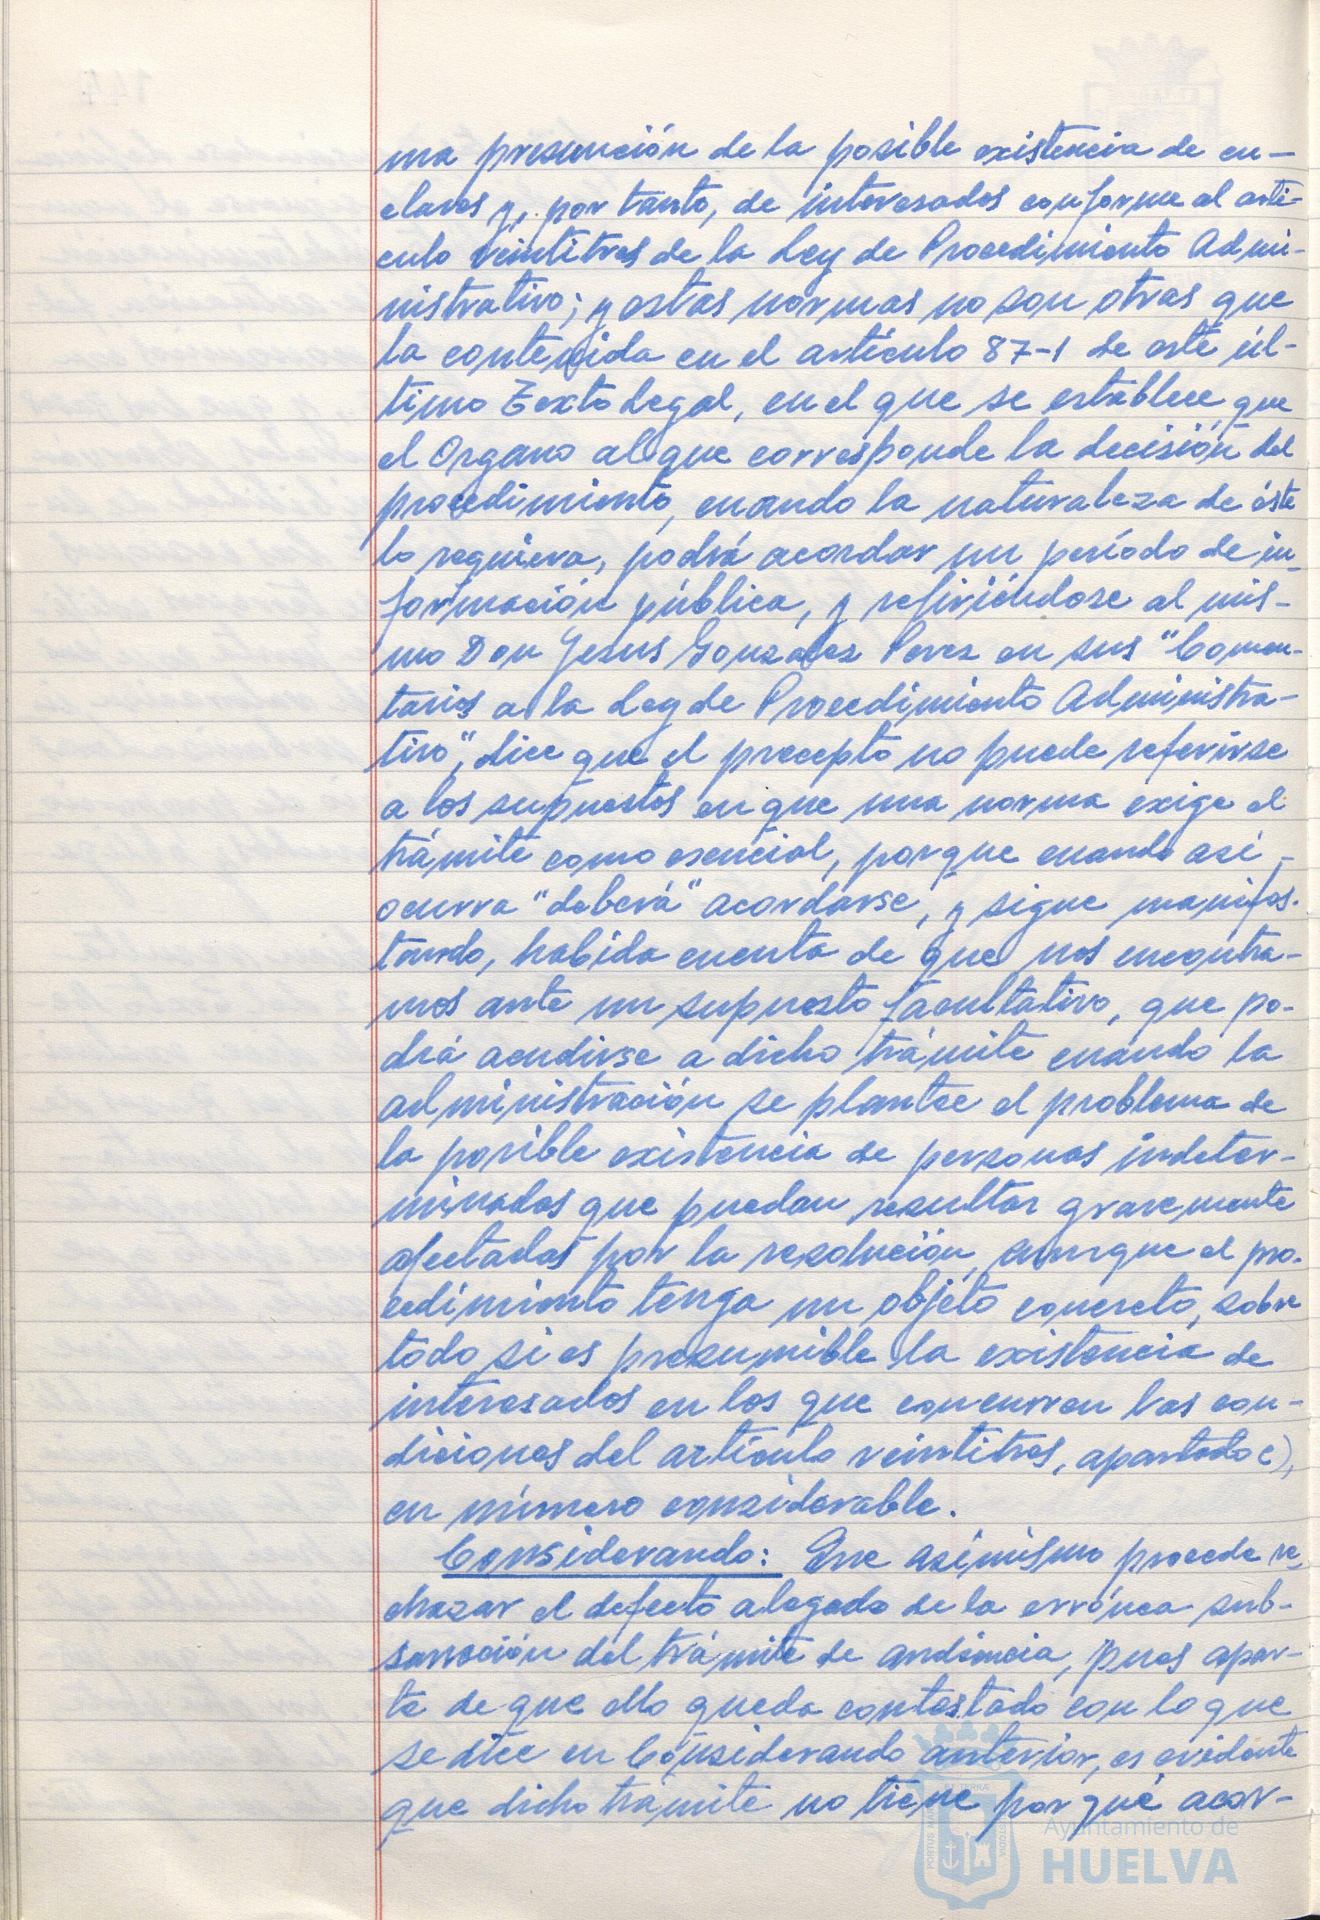 una presunción de la posible existencia de en-
claves y, por tanto, de interesados conforme al artí-
culo veintitres de la Ley de Procedimiento Admi-
nistrativo; y estas normas no son otras que
la contenida en el artículo 87-1 de este úl-
timo Texto Legal, en el que se establece que
el Organo al que corresponde la decisión del
procedimiento, cuando la naturaleza de éste
lo requiera, podrá acordar un período de in-
formación pública, y refiriéndose al mis-
mo Don Jesus González Perez en sus "Comen-
tarios a la Ley de Procedimiento Administra-
tivo", dice que el precepto no puede referirse
a los supuestos en que una norma exige el
trámite como esencial, porque cuando así
ocurra "deberá" acordarse, y sigue manifes-
tando, habida cuenta de que nos encontra-
mos ante un supuesto facultativo, que po-
drá acudirse a dicho trámite cuando la
administración se plantee el problema de
la posible existencia de personas indeter-
minadas que puedan resultar gravemente
afectadas por la resolución, aunque el pro-
cedimiento tenga un objeto concreto, sobre
todo si es presumible la existencia de
interesados en los que concurren las con-
diciones del artículo veintitres, apartado c),
en número considerable.
Considerando: Que asimismo procede re-
chazar el defecto alegado de la errónea sub-
sanación del trámite de audiencia, pues apar-
te de que ello queda contestado con lo que
se dice en Considerando anterior, es evidente
que dicho trámite no tiene por qué acor-
Ayuntamiento de
HUELVA